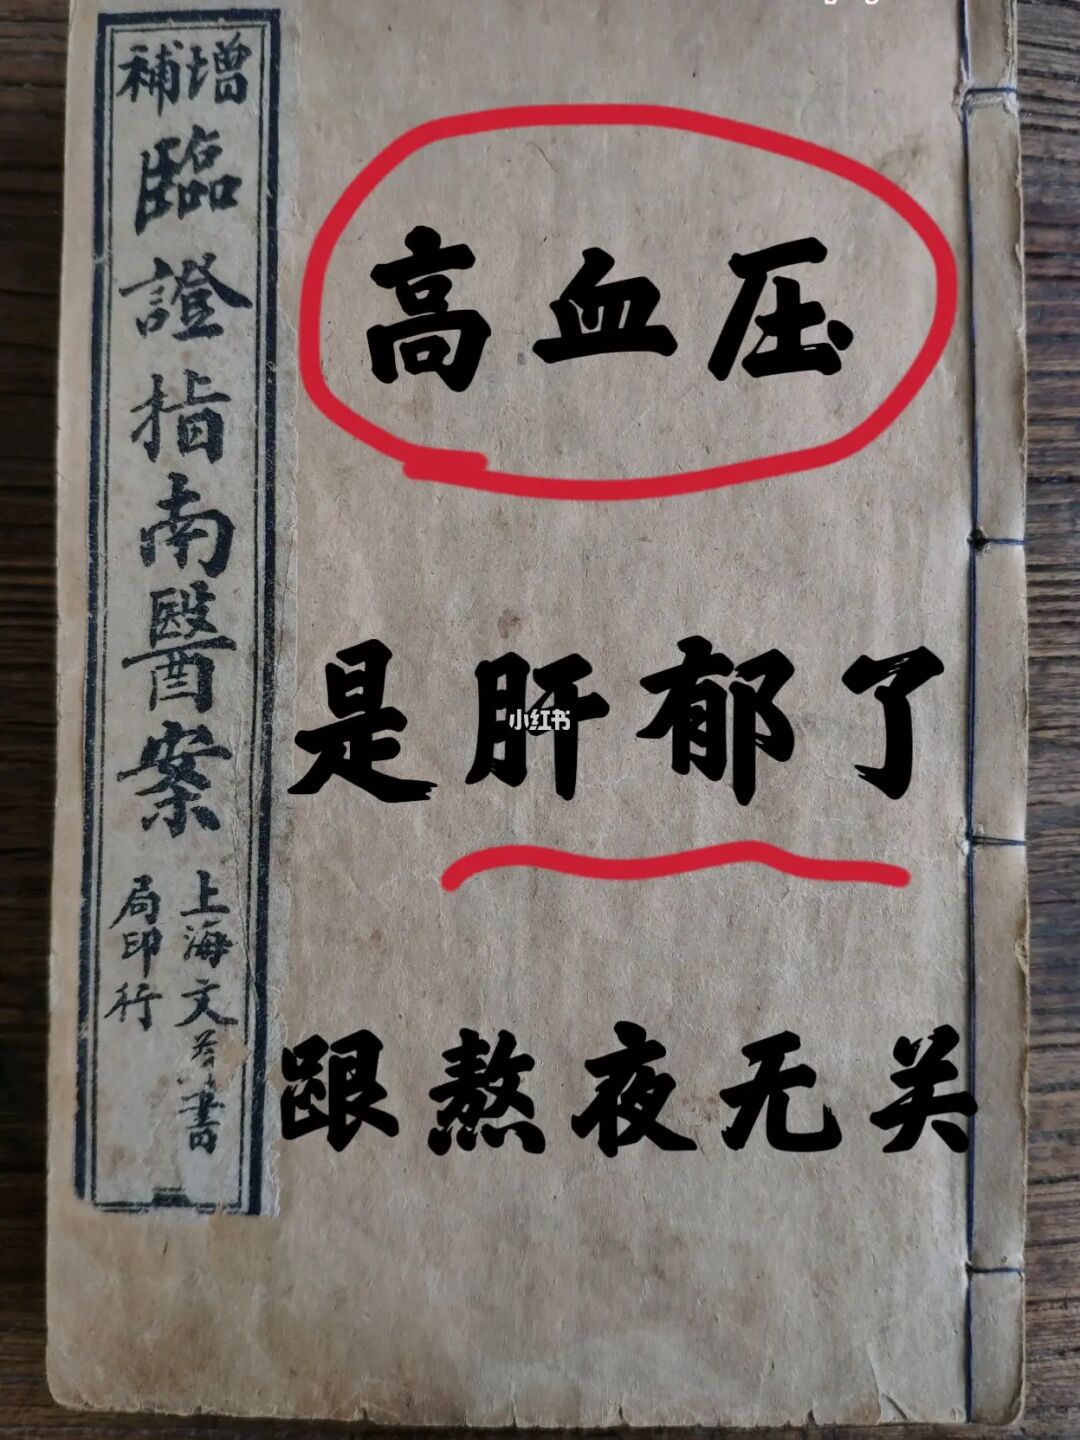 增補
臨證指南醫案
上海文
書
局印行
高血压
是肝郁了
小红书
跟熬夜无关